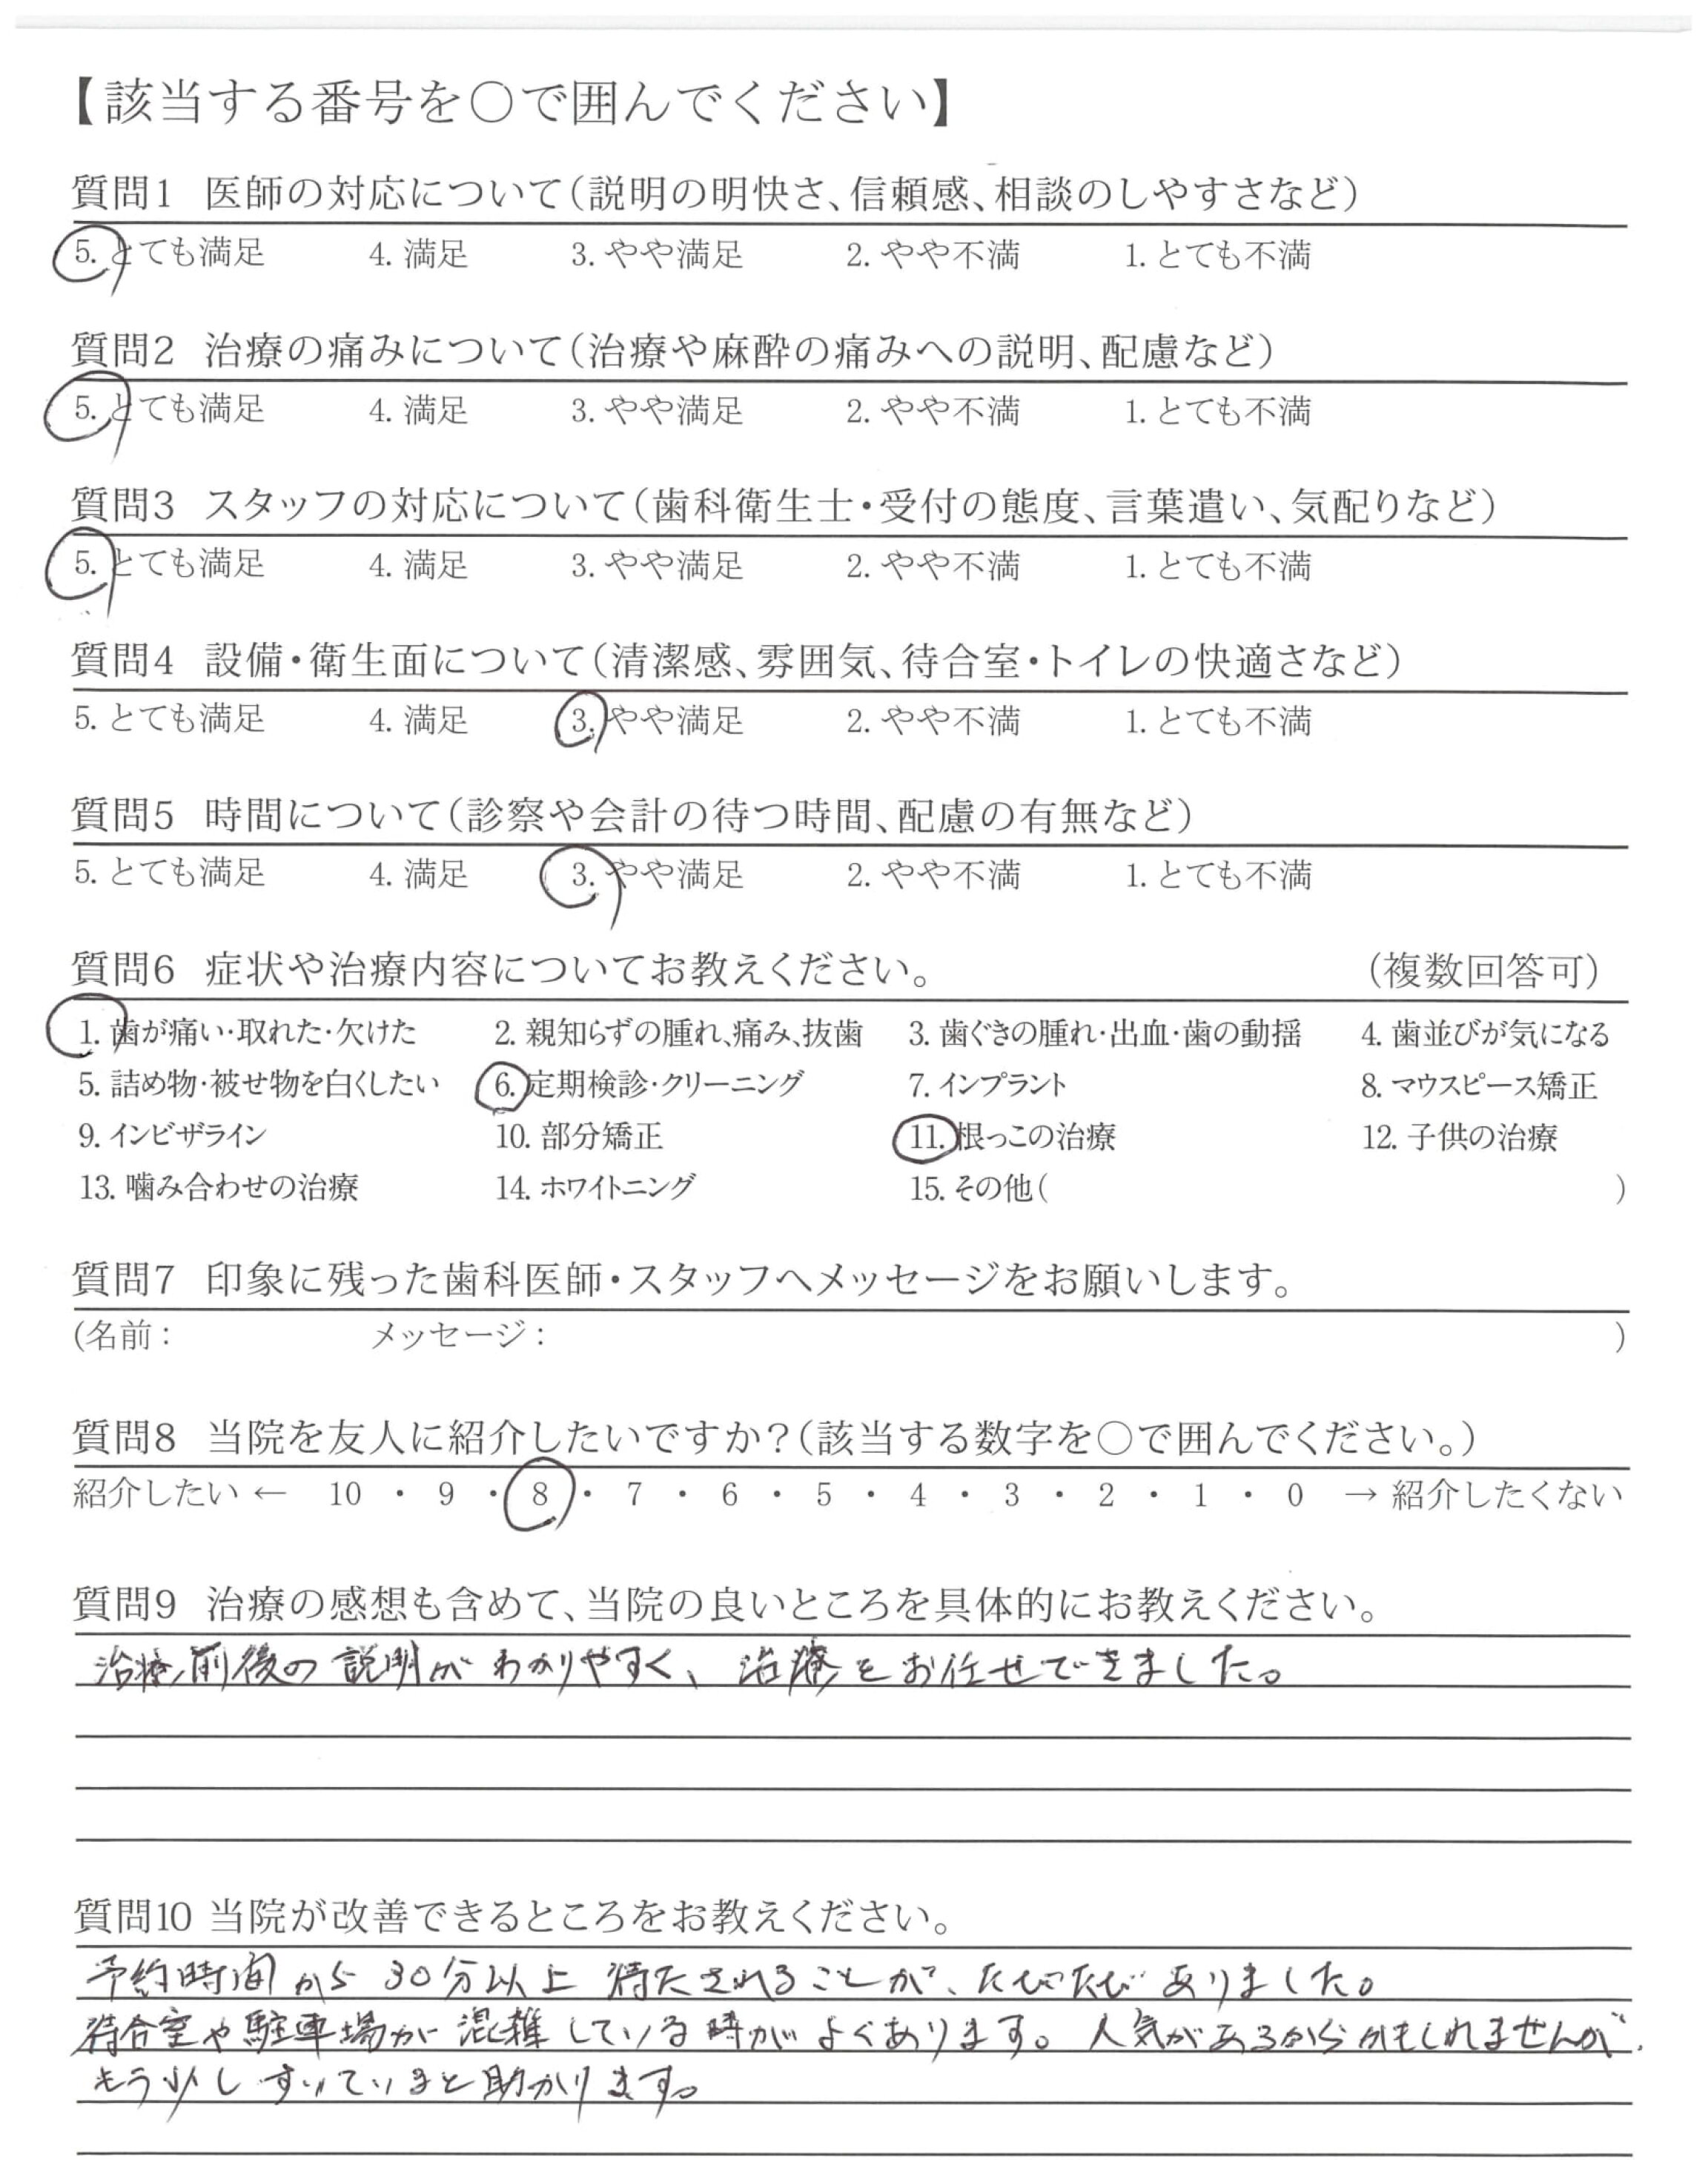 【該当する番号を○で囲んでください】
質問1 医師の対応について(説明の明快さ、信頼感、相談のしやすさなど)
5. とても満足 4. 満足 3. やや満足 2. やや不満 1. とても不満
質問2 治療の痛みについて(治療や麻酔の痛みへの説明、配慮など)
5. とても満足 4. 満足 3. やや満足 2. やや不満 1. とても不満
質問3 スタッフの対応について(歯科衛生士・受付の態度、言葉遣い、気配りなど)
5. とても満足 4. 満足 3. やや満足 2. やや不満 1. とても不満
質問4 設備・衛生面について(清潔感、雰囲気、待合室・トイレの快適さなど)
5. とても満足 4. 満足 3. やや満足 2. やや不満 1. とても不満
質問5 時間について(診察や会計の待つ時間、配慮の有無など)
5. とても満足 4. 満足 3. やや満足 2. やや不満 1. とても不満
質問6 症状や治療内容についてお教えください。 (複数回答可)
1. 歯が痛い・取れた・欠けた 2. 親知らずの腫れ、痛み、抜歯 3. 歯ぐきの腫れ・出血・歯の動揺 4. 歯並びが気になる
5. 詰め物・被せ物を白くしたい 6. 定期検診・クリーニング 7. インプラント 8. マウスピース矯正
9. インビザライン 10. 部分矯正 11. 根っこの治療 12. 子供の治療
13. 噛み合わせの治療 14. ホワイトニング 15. その他( )
質問7 印象に残った歯科医師・スタッフへメッセージをお願いします。
(名前: メッセージ: )
質問8 当院を友人に紹介したいですか?(該当する数字を○で囲んでください。)
紹介したい ← 10 ・ 9 ・ 8 ・ 7 ・ 6 ・ 5 ・ 4 ・ 3 ・ 2 ・ 1 ・ 0 → 紹介したくない
質問9 治療の感想も含めて、当院の良いところを具体的にお教えください。
治療前後の説明がわかりやすく、治療をお任せできました。
質問10 当院が改善できるところをお教えください。
予約時間から30分以上待たされることが、たびたびありました。
待合室や駐車場が混雑している時がよくあります。人気があるからかもしれませんが、
もう少しすいていると助かります。